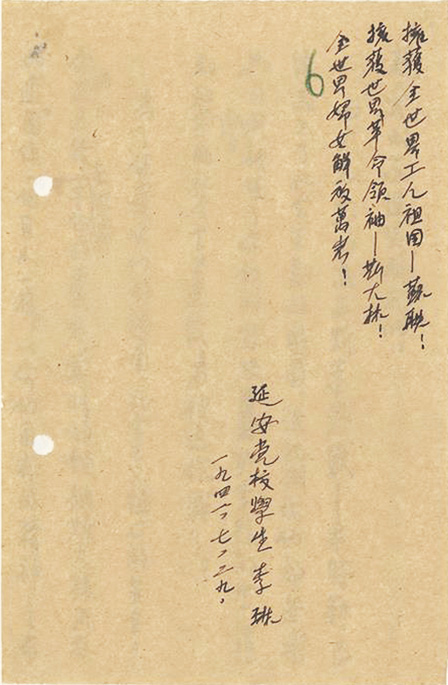 擁護全世界工人祖国—蘇联！
擁護世界革命領袖—斯大林！
全世界婦女解放萬岁！
6
延安党校學生李琳
一九四六、七、二九、